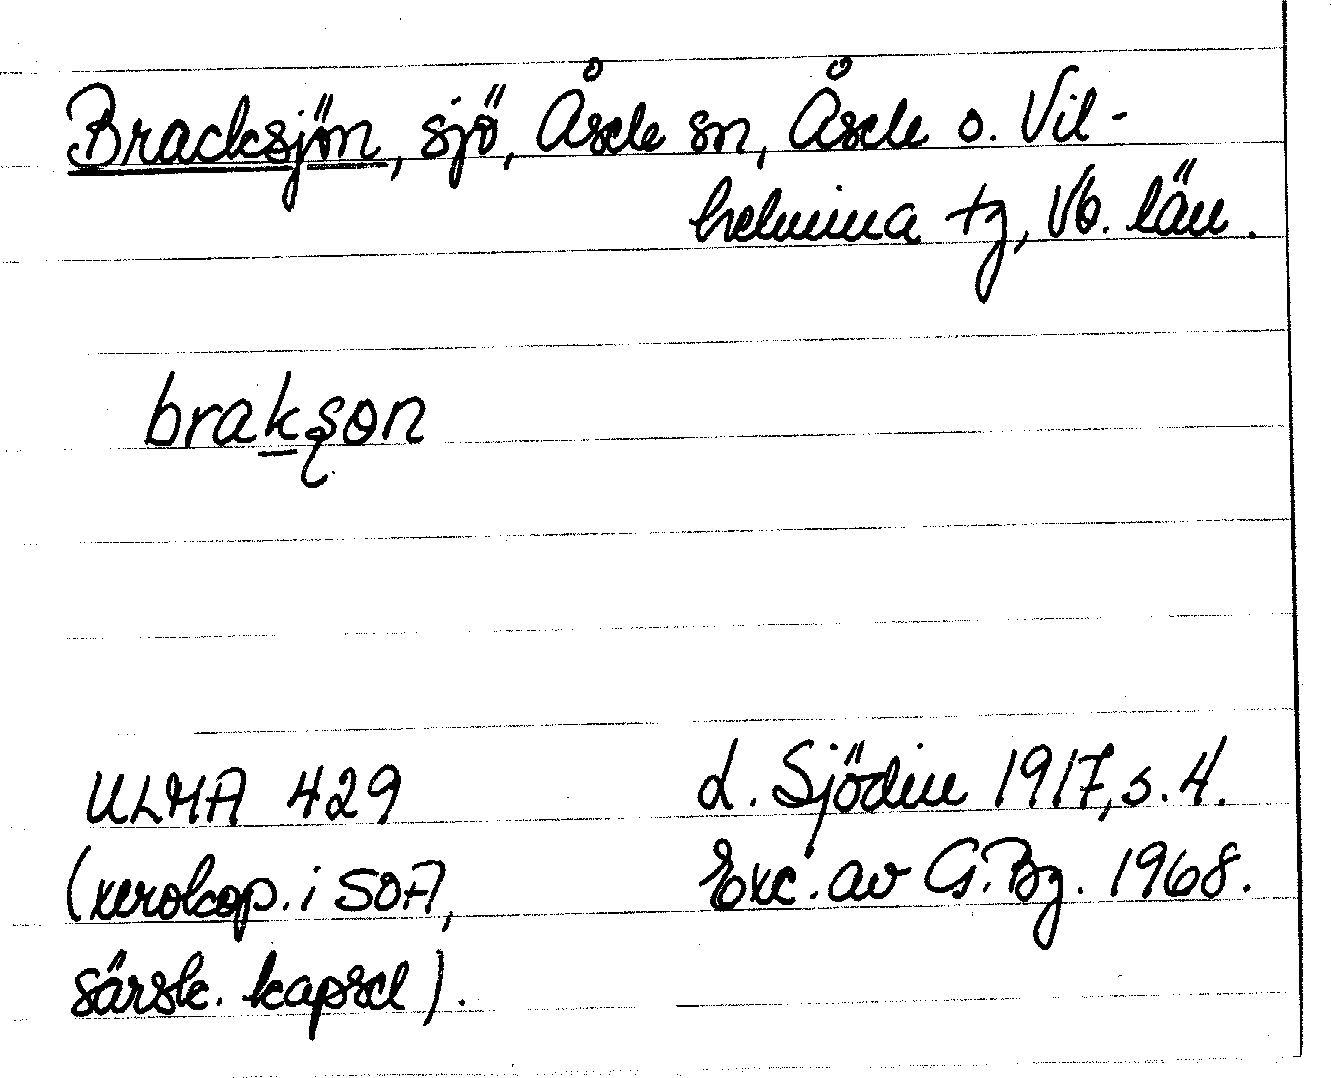 Bracksjön, sjö, Åsele sn, Åsele o. Vil-
helmina tg, Vb. län.
brakʂøn
ULMA 429
(xerokop. i SOA,
särsk. kapsel).
L. Sjödin 1917, s. 4.
Exc. av G. Bg. 1968.